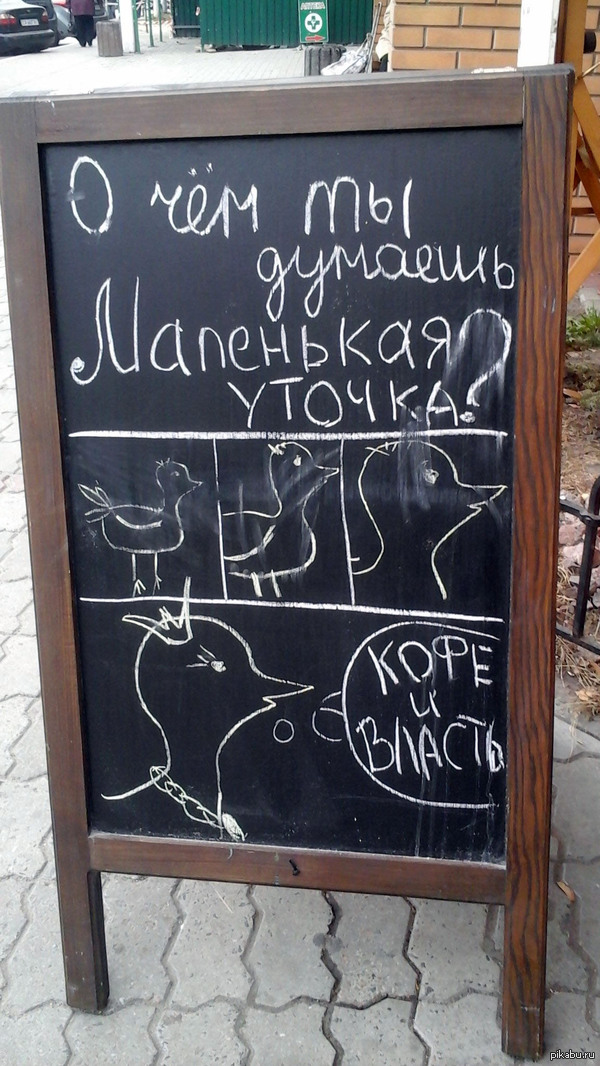 АПТЕКА
О чём ты
думаешь
Маленькая
уточка?
КОФЕ
и
ВЛАСТЬ
pikabu.ru